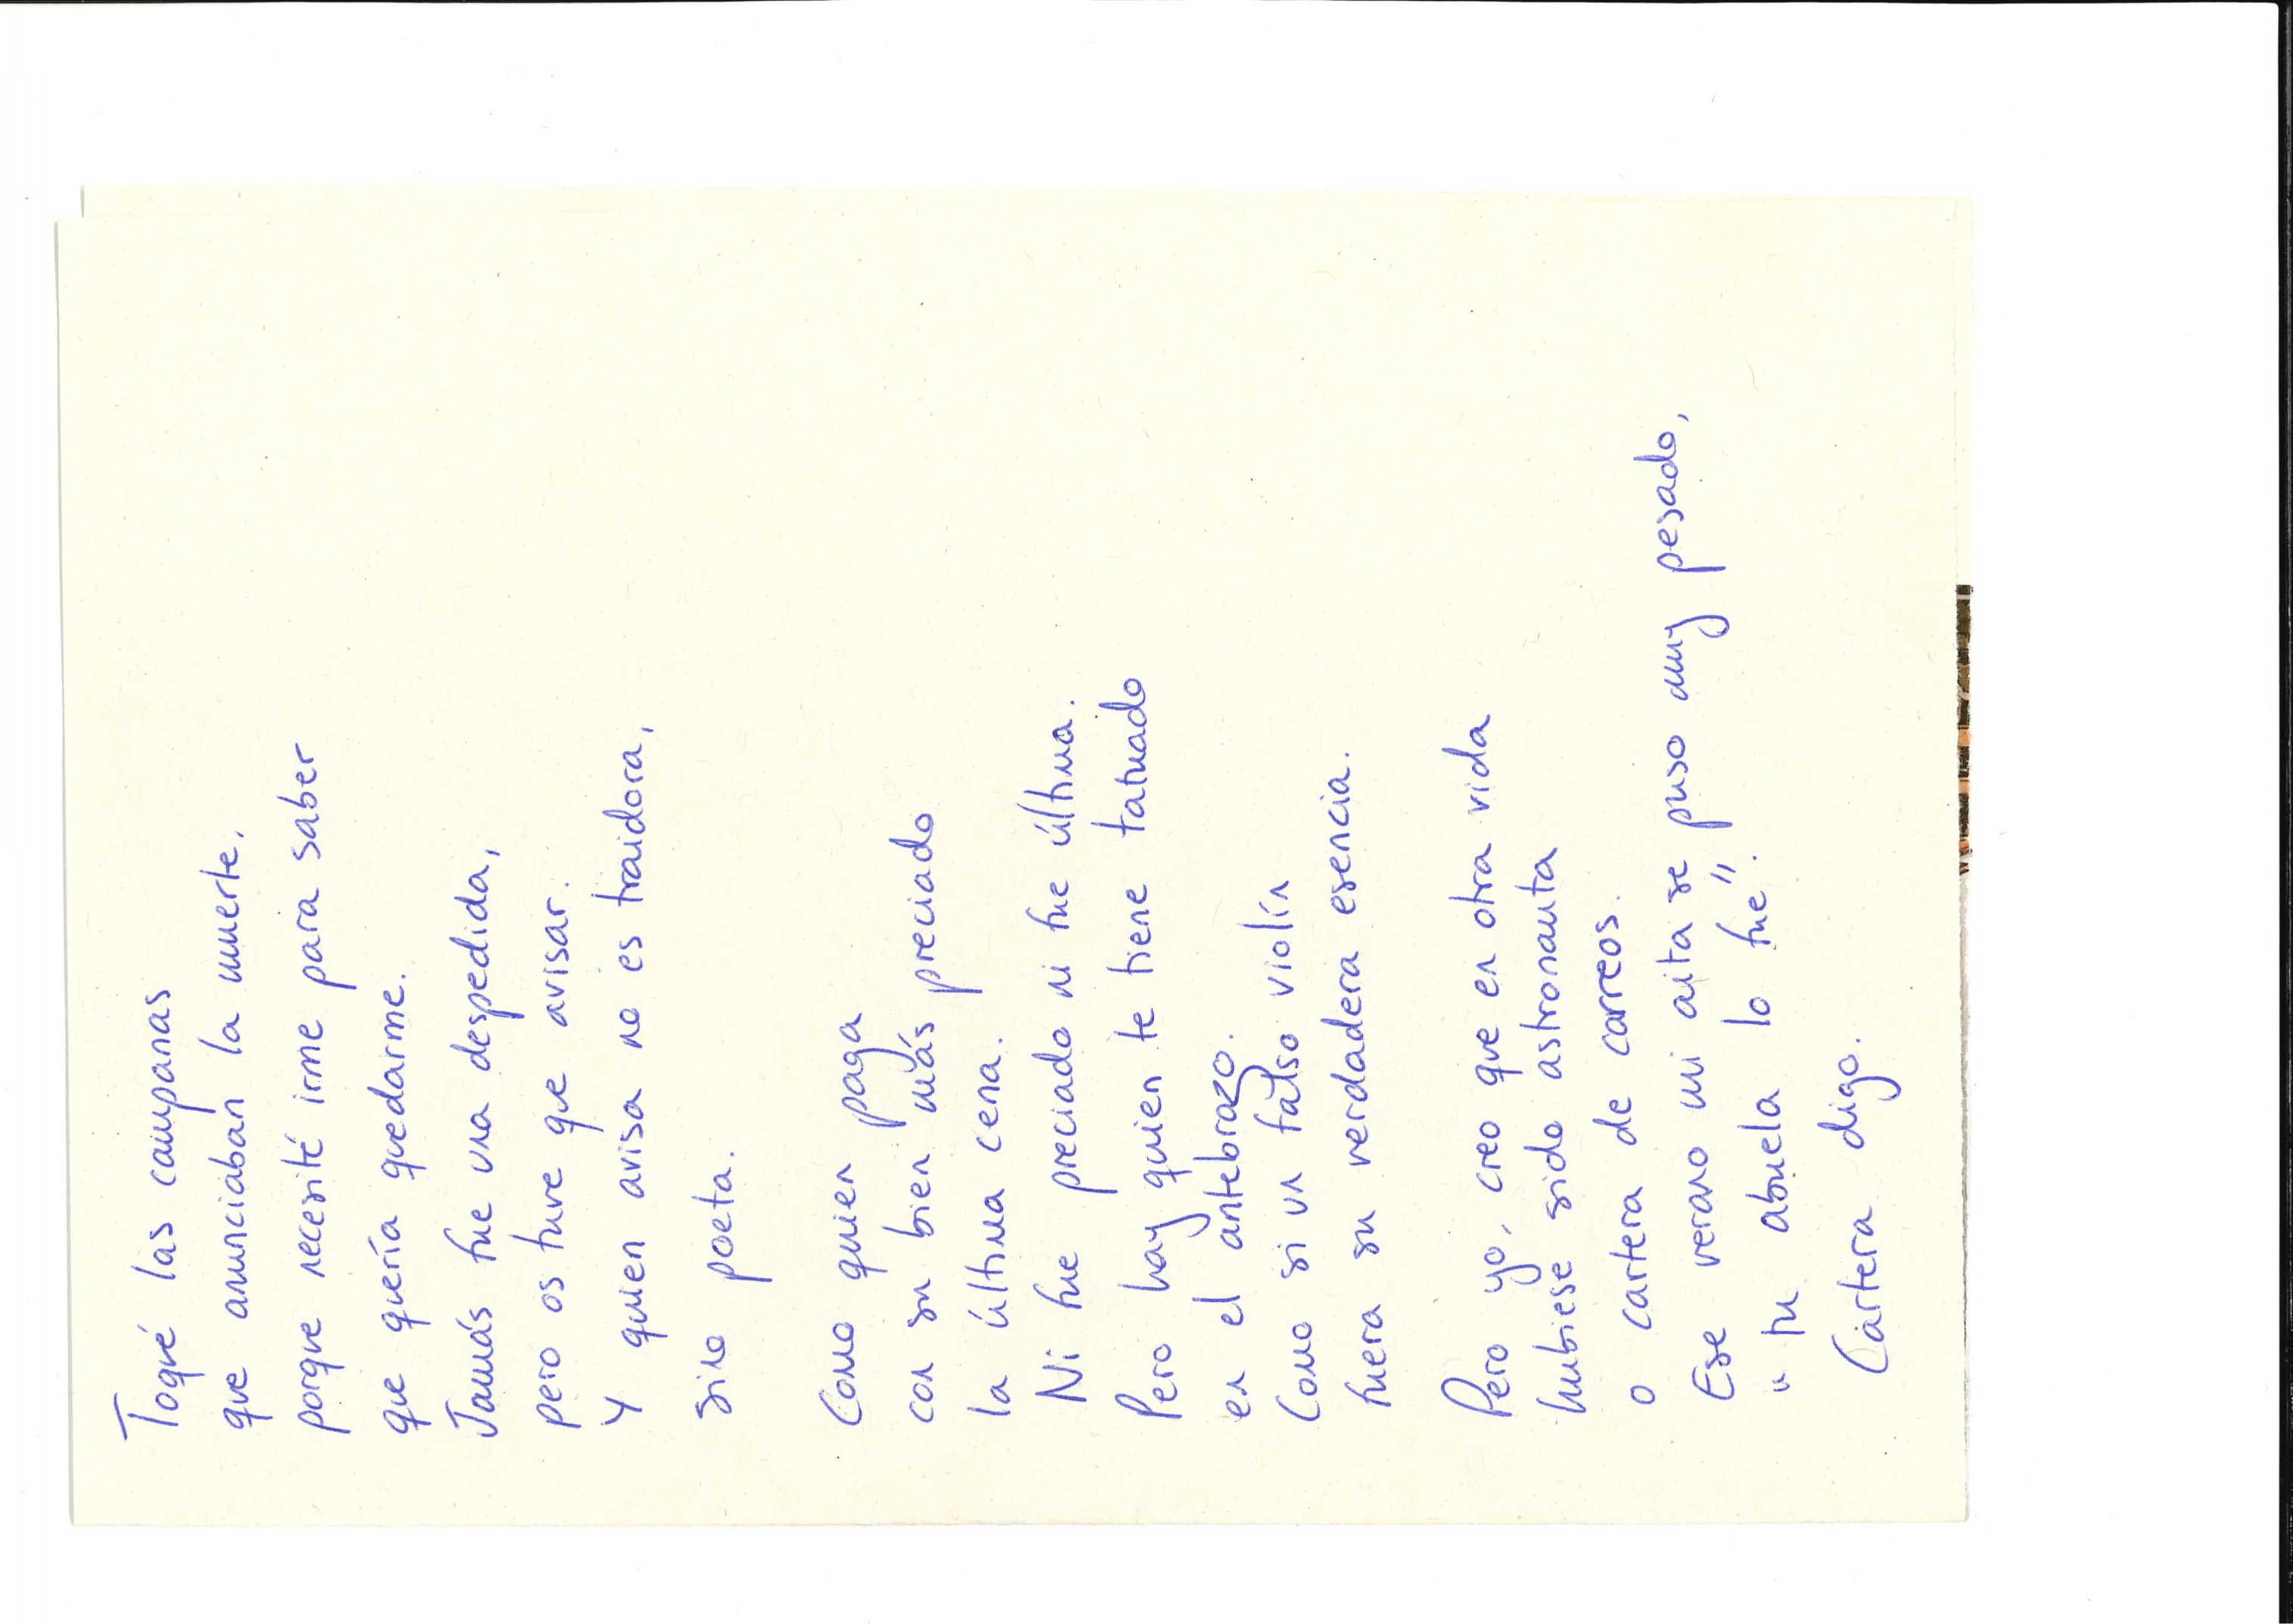 Toqué las campanas
que anunciaban la muerte,
porque necesité irme para saber
que quería quedarme.
Jamás fue una despedida,
pero os tuve que avisar.
Y quien avisa no es traidora,
sino poeta.
Como quien paga
con su bien más preciado
la última cena.
Ni fue preciado ni fue última.
Pero hay quien te tiene tatuado
en el antebrazo.
Como si un falso violín
fuera su verdadera esencia.
Pero yo, creo que en otra vida
hubiese sido astronauta
o cartera de correos.
Ese verano mi aita se puso muy pesado,
"tu abuela lo fue".
Cartera digo.